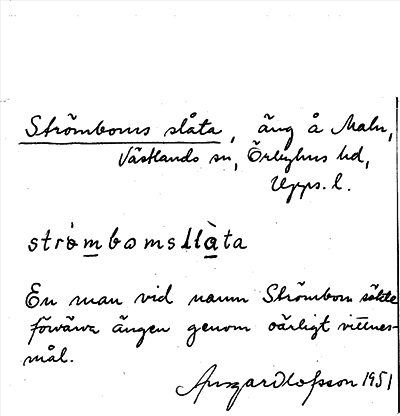 Strömboms slåta, äng å Malm,
Västlands sn, Örbyhus hd,
Upps. l.
strò̀m̲bomsllà̲ta
En man vid namn Strömbom sökte
förvärva ängen genom oärligt vittnes-
mål.
Ansgar Olofsson 1951